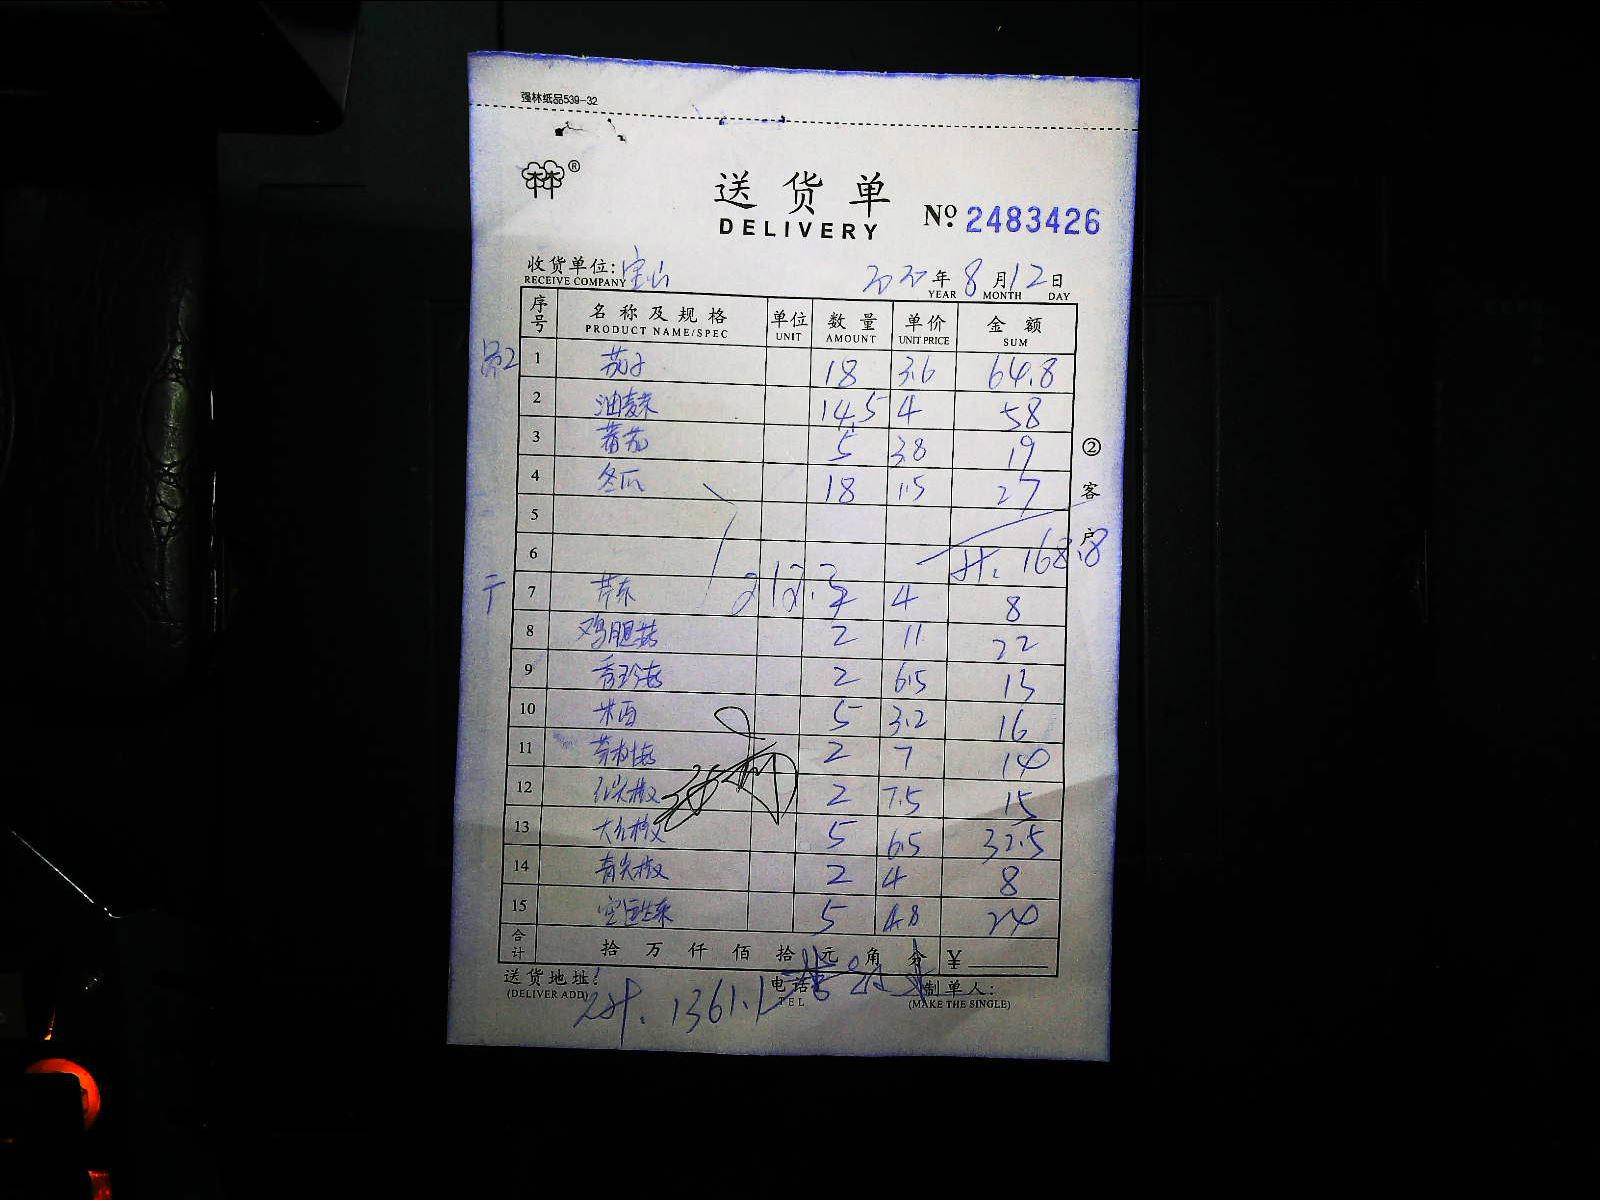 强林纸品539-32
林®
送货单
DELIVERY
No. 2483426
收货单位: 宝山
RECEIVE COMPANY
2020年8月12日
YEAR MONTH DAY
序号 名称及规格 单位 数量 单价 金额
PRODUCT NAME/SPEC UNIT AMOUNT UNIT PRICE SUM
1 茄子 18 3.6 64.8
2 油麦菜 14.5 4 58
3 蕃茄 5 3.8 19
4 冬瓜 18 1.5 27
5
6 计. 168.8
7 2 4 8
8 鸡腿菇 2 11 22
9 2 6.5 13
10 5 3.2 16
11 2 7 14
12 红尖椒 2 7.5 15
13 5 6.5 32.5
14 青尖椒 2 4 8
15 5 4.8 24
② 客户
合计 拾 万 仟 佰 拾 元 角 分 ¥
送货地址:
(DELIVER ADD)
电话
TEL
制单人:
(MAKE THE SINGLE)
1361.1